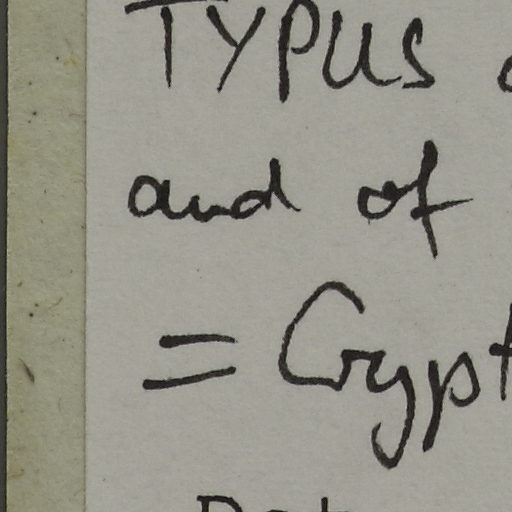 TYPUS
and of
= Crypt